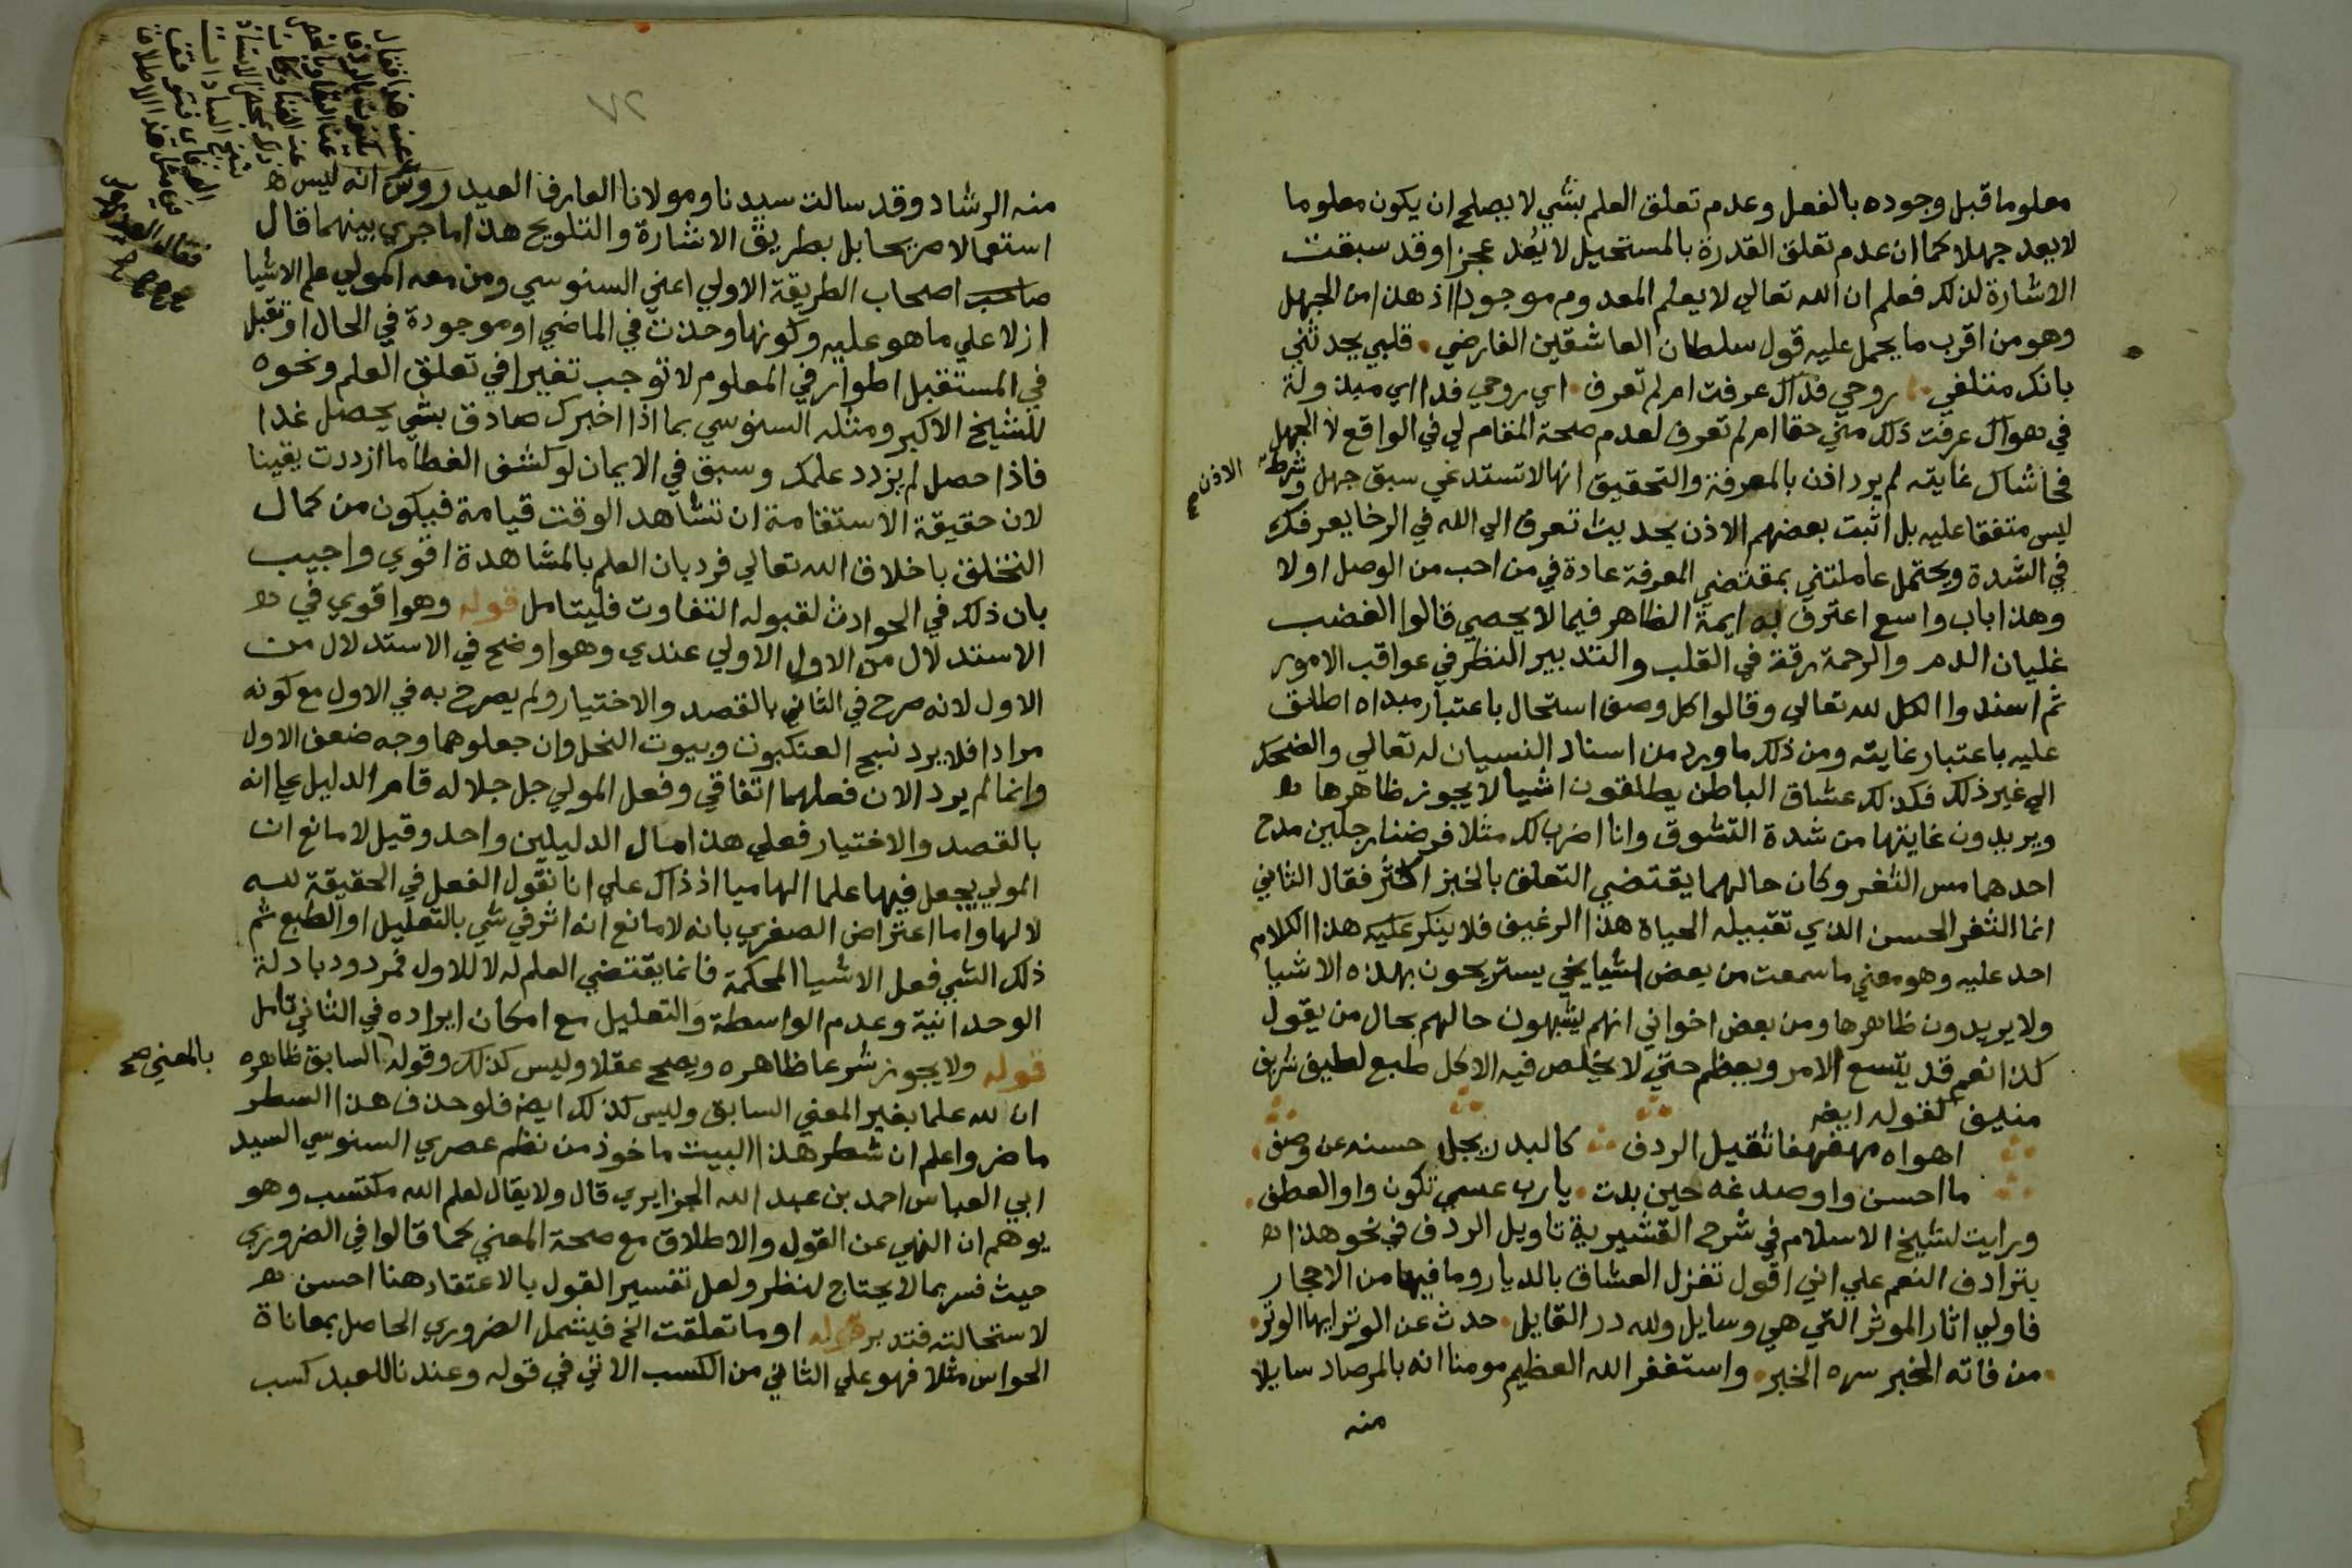 معلوما قبل وجوده بالفعل وعدم تعلق العلم بشي لا يصلح ان يكون معلوما
لا يعد جهلا كما ان عدم تعلق القدرة بالمستحيل لا يُعَد عجزا وقد سبقت
الاشارة لذلك فعلم ان الله تعالي لا يعلم المعدوم موجودا اذ هذا من الجهل
وهو من اقرب ما يحمل عليه قول سلطان العاشقين الفارضي • قلبي يحدثني
بانك متلفي • روحي فداك عرفت ام لم تعرف • اي روحي فدا اي مبذولة
في هواك عرفت ذلك مني حقا ام لم تعرف لعدم صحة المقام لي في الواقع لا الجهل
فحاشاك غايته لم يرد اذن بالمعرفة والتحقيق انها لا تستدعي سبق جهل وشرطية
الاذن صح
ليس متفقا عليه بل اثبت بعضهم الاذن بحديث تعرف الي الله في الرخا يعرفك
في الشدة ويحتمل عاملتني بمقتضي المعرفة عادة في من احب من الوصل اولا
وهذا باب واسع اعترف به ايمة الظاهر فيما لا يحصي قالوا الغضب
غليان الدم والرحمة رقة في القلب والتدبير النظر في عواقب الامور
ثم اسندوا الكل لله تعالي وقالوا كل وصف استحال باعتبار مبداه اطلق
عليه باعتبار غايته ومن ذلك ما ورد من اسناد النسيان له تعالي والضحك
الي غير ذلك فكذلك عشاق الباطن يطلقون اشيا لا يجوز ظاهرها
ويريدون غايتها من شدة التشوق وانا اضرب لك مثلا فرضنا رجلين مدح
احدهما مس الثغر وكان حالهما يقتضي التعلق بالخبز اكثر فقال الثاني
انما الثغر الحسن الذي تقبيله الحياة هذا الرغيف فلا ينكر عليه هذا الكلام
احد عليه وهو معني ما سمعت من بعض اشياخي يستريحون بهذه الاشيا
ولا يريدون ظاهرها ومن بعض اخواني انهم يشبهون حالهم بحال من يقول
كذا نعم قد يتسع الامر ويعظم حتي لا يخلص فيه الا كل طبع لطيف شريف
منيف كقوله ايضه
اهواه مهفهفا ثقيل الردف كالبدر يجل حسنه عن وصف •
ما احسن واو صدغه حين بدت • يا رب عسي تكون واو العطف •
ورايت لشيخ الاسلام في شرح القشيرية تاويل الردف في نحو هذا
بترادف النعم علي اني اقول تغزل العشاق بالديار وما فيها من الاحجار
فاولي اثار الموثر التي هي وسايل ولله در القايل • حدث عن الوتر ايها الوتر •
• من فاته الخبر سره الخبر • واستغفر الله العظيم مومنا انه بالمرصاد سايلا
منه
٧٢
منه الرشاد وقد سالت سيدنا ومولانا العارف العيدروس انه ليس
استعمالا صريحا بل بطريق الاشارة والتلويح هذا ما جري بينهما قال
صاحب اصحاب الطريقة الاولي اعني السنوسي ومن معه المولي علم الاشيا
ازلا علي ما هو عليه وكونها وجدت في الماضي او موجودة في الحال او تقبل
في المستقبل اطوار في المعلوم لا توجب تغيرا في تعلق العلم ونحوه
للشيخ الاكبر ومثله السنوسي بما اذا اخبرك صادق بشي يحصل غدا
فاذا حصل لم يزدد علمك وسبق في الايمان لو كشف الغطا ما ازددت يقينا
لان حقيقة الاستقامة ان تشاهد الوقت قيامة فيكون من كمال
التخلق باخلاق الله تعالي فرد بان العلم بالمشاهدة اقوي واجيب
بان ذلك في الحوادث لقبوله التفاوت فليتامل قوله وهو اقوي في
الاستدلال من الاول الاولي عندي وهو اوضح في الاستدلال من
الاول لانه صرح في الثاني بالقصد والاختيار ولم يصرح به في الاول مع كونه
مرادا فلا يرد نسج العنكبوت وبيوت النحل وان جعلوهما وجه ضعف الاول
وانما لم يرد الان فعلهما اتفاقي وفعل المولي جل جلاله قام الدليل علي انه
بالقصد والاختيار فعلي هذا مال الدليلين واحد وقيل لا مانع ان
المولي يجعل فيها علما الهاميا اذ ذاك علي انا نقول الفعل في الحقيقة لله
لا لها واما اعتراض الصغري بانه لا مانع انه اثر في شي بالتعليل او الطبع ثم
ذلك الشي فعل الاشيا المحكمة فانما يقتضي العلم له لا للاول فمردود بادلة
الوحدانية وعدم الواسطة والتعليل مع امكان ايراده في الثاني تامل
قوله ولا يجوز شرعا ظاهره ويصح عقلا وليس كذلك وقوله السابق ظاهره
بالمعني صح
ان لله علما بغير المعني السابق وليس كذلك ايضه فلو حذف هذا السطر
ما ضر واعلم ان شطر هذا البيت ماخوذ من نظم عصري السنوسي السيد
ابي العباس احمد بن عبد الله الجزايري قال ولا يقال لعلم الله مكتسب وهو
يوهم ان النهي عن القول والاطلاق مع صحة المعني كما قالوا في الضروري
حيث فسر بما لا يحتاج لنظر ولعل تفسير القول بالاعتقاد هنا احسن
لاستحالته فتدبر قوله او ما تعلقت الخ فيشمل الضروري الحاصل بمعاناة
الحواس مثلا فهو علي الثاني من الكسب الاتي في قوله وعندنا للعبد كسب